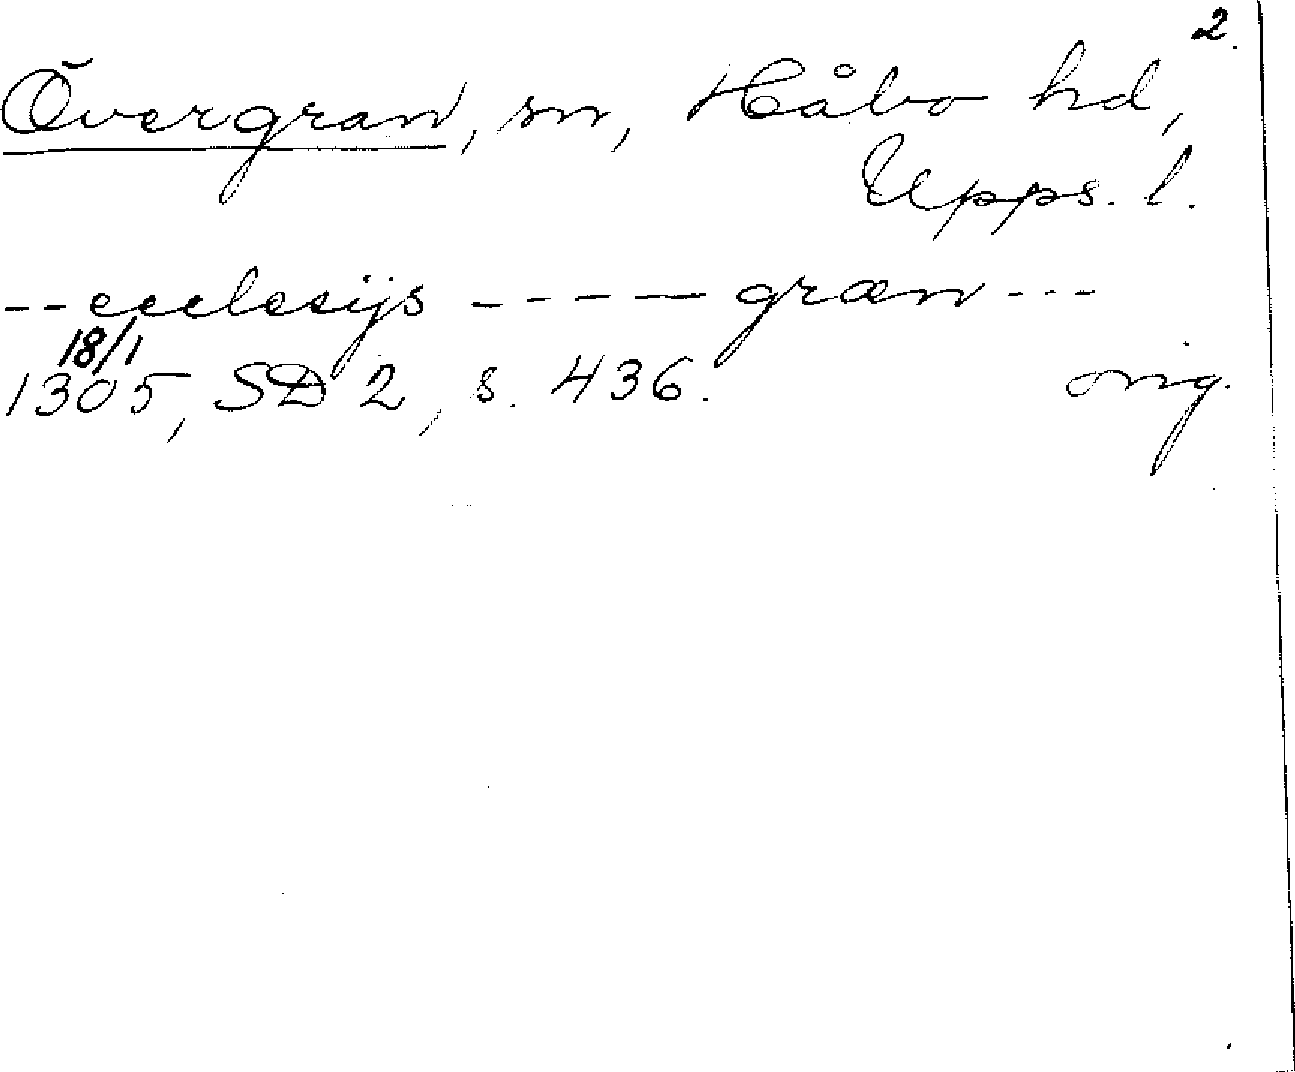 2.
Övergran, sn, Håbo hd,
Upps. l.
-- ecclesijs ----- græn ---
18/1
1305, SD 2, s. 436. orig.